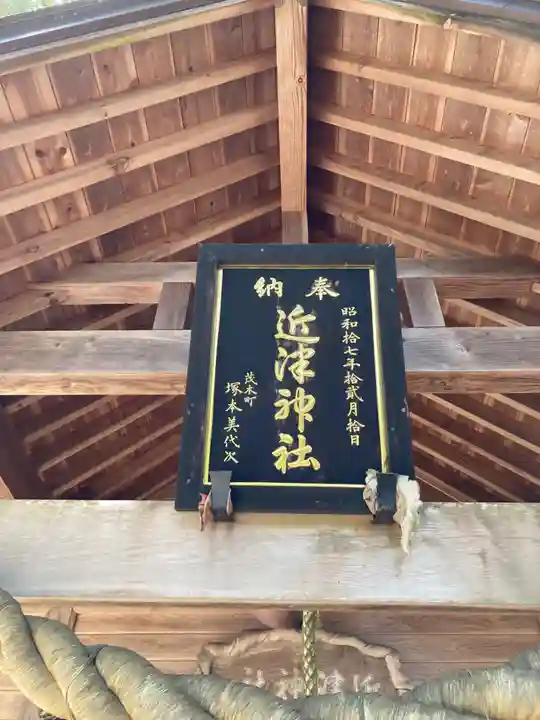 奉納
昭和拾七年拾貳月拾日
近津神社
茂木町
塚本美代次
近津神社